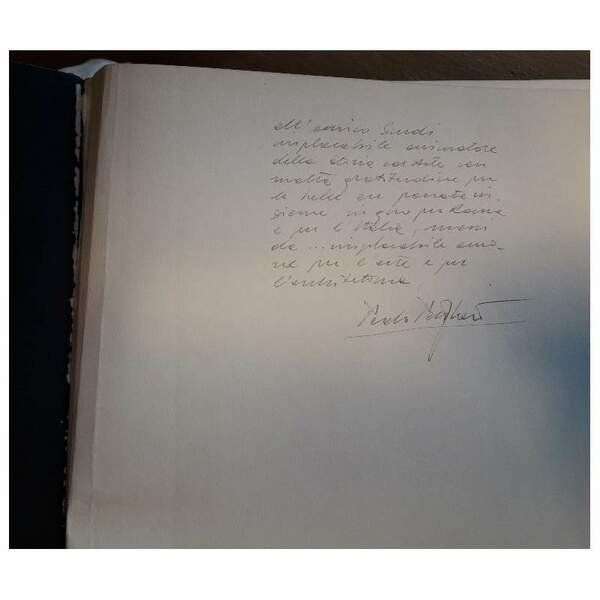 all'amico Giudi
implacabile animatore
della storia con
molta gratitudine per
le belle ore passate in-
sieme in giro per Roma
e per l'Italia, mossi
da... implacabile amo-
re per l'arte e per
l'architettura
Paolo Portoghesi